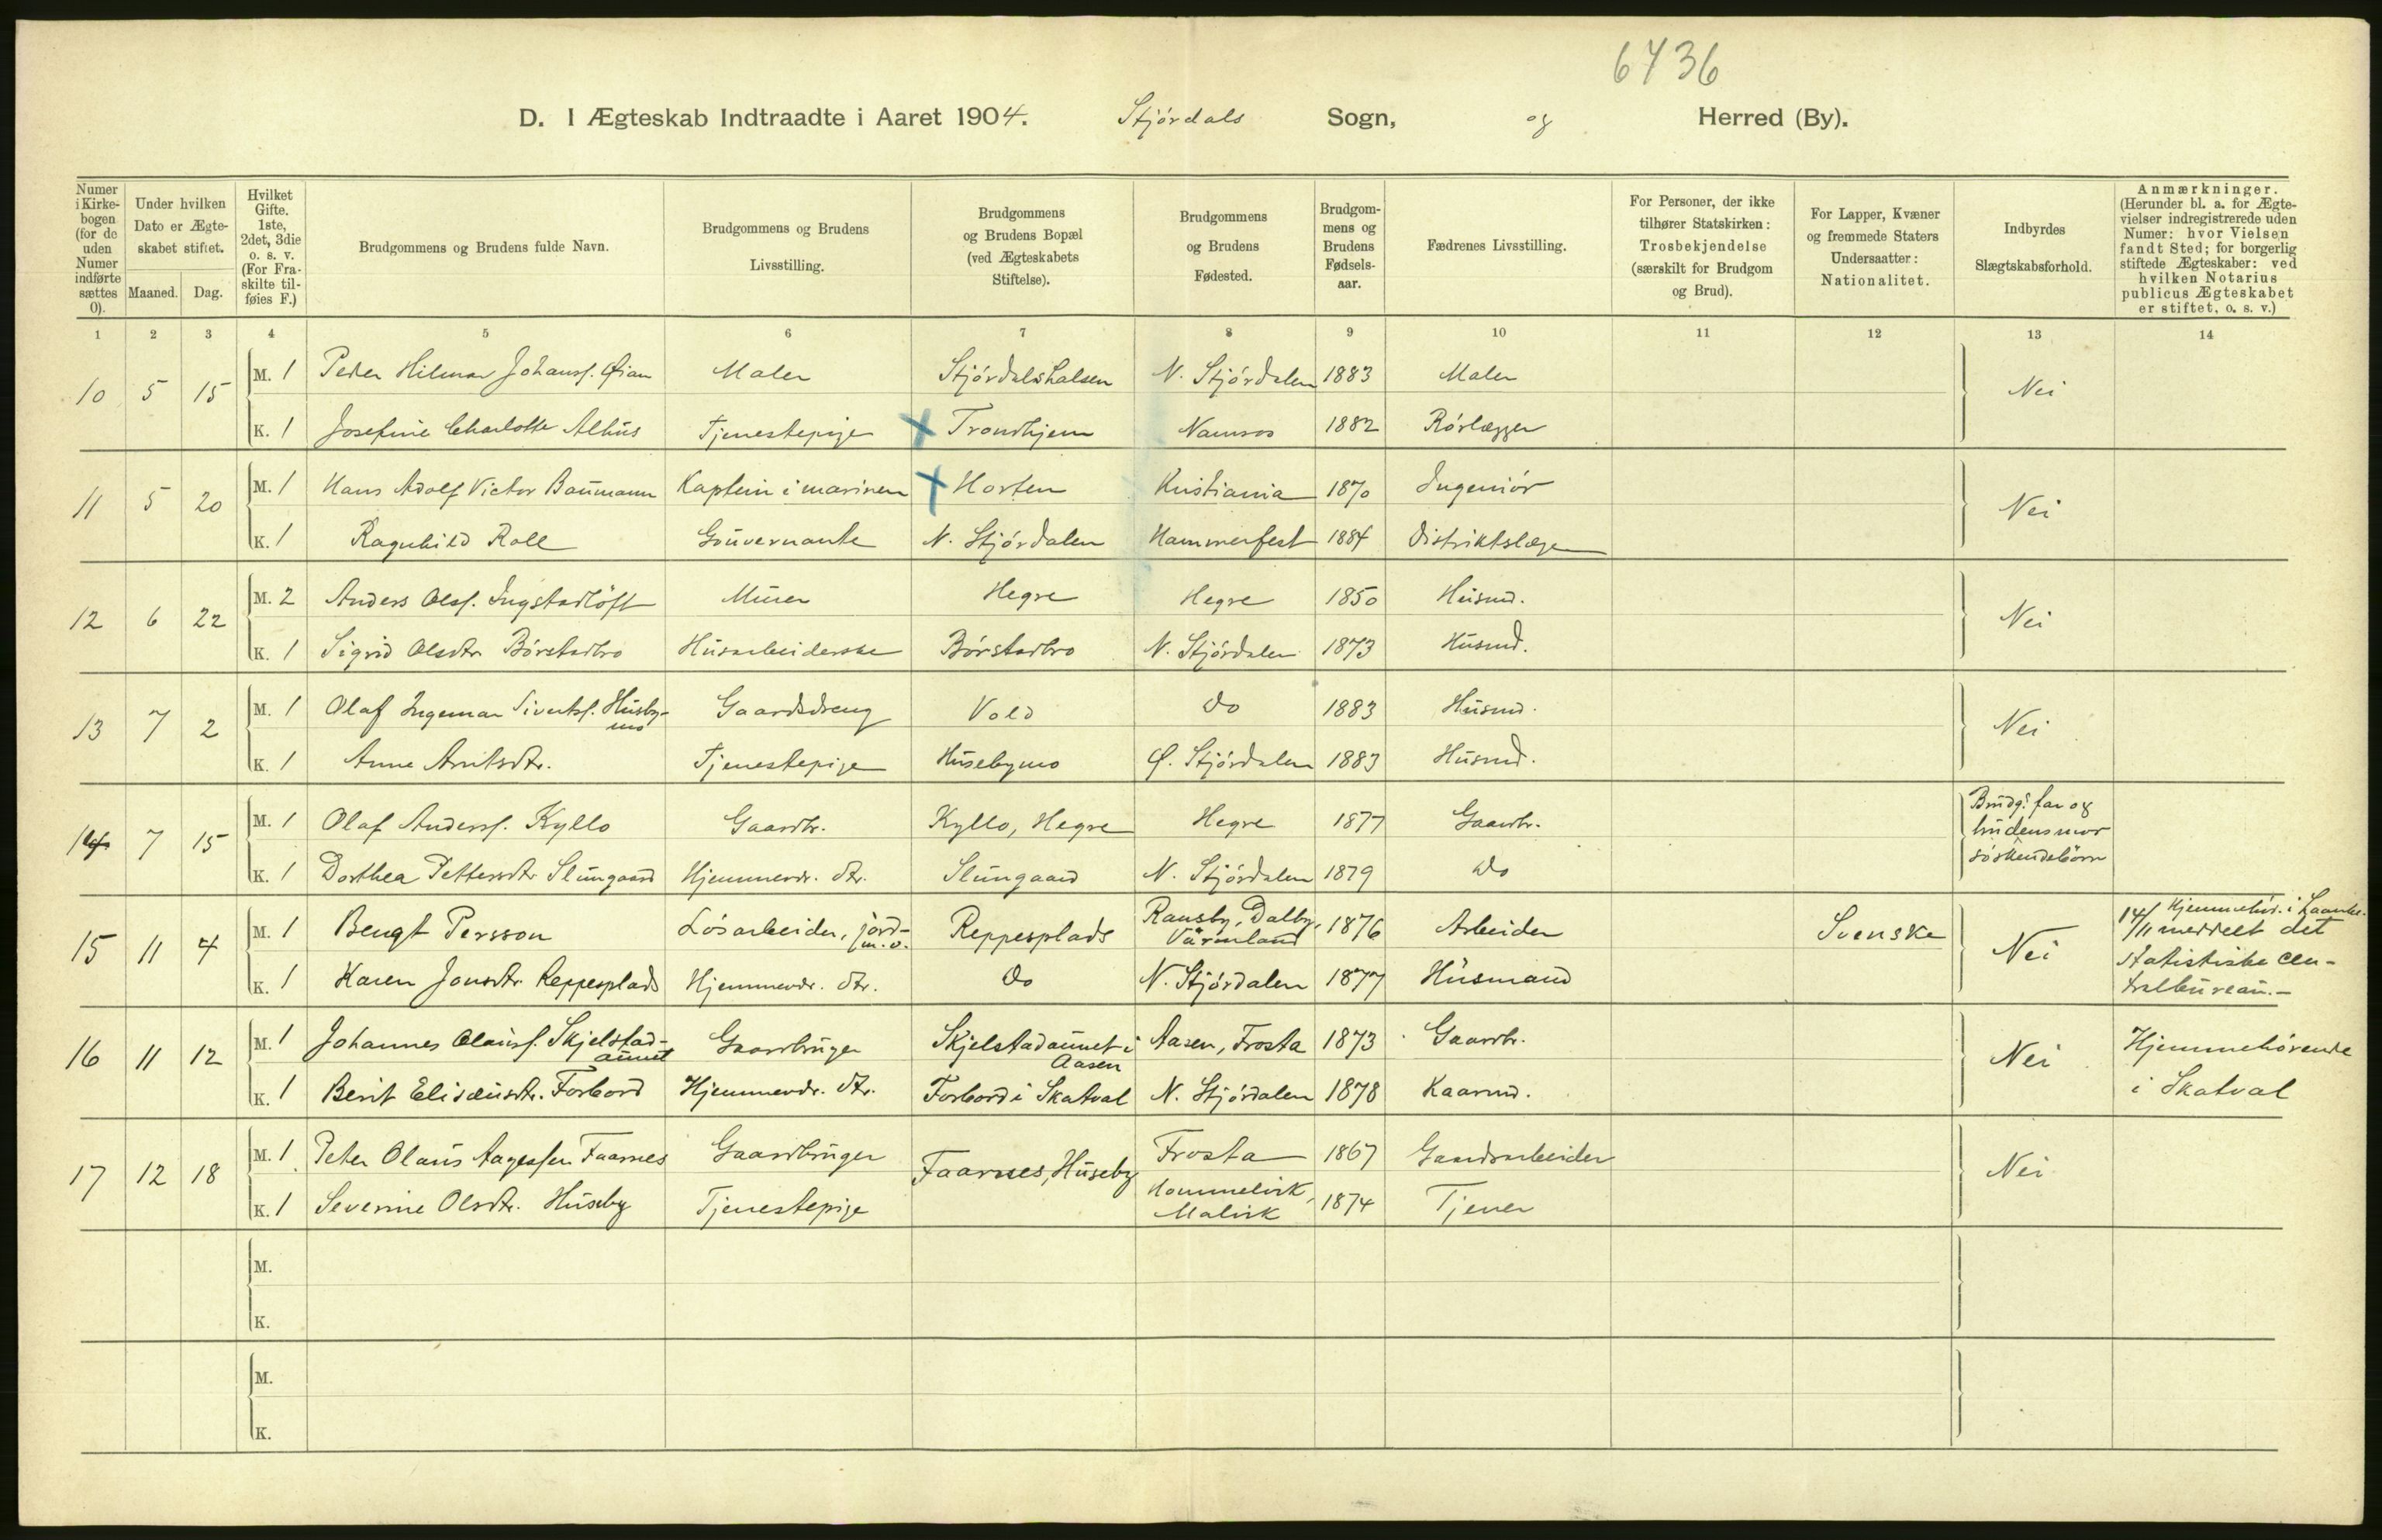 6436
D. I Ægteskab Indtraadte i Aaret 1904. Stjórdals Sogn, og Herred (By).
Numer i Kirkebogen (for de uden Numer indførte sættes 0).
Under hvilken Dato er Ægteskabet stiftet.
Maaned. Dag.
Hvilket Gifte. 1ste, 2det, 3die o. s. v. (For Fraskilte tilføies F.)
Brudgommens og Brudens fulde Navn.
Brudgommens og Brudens Livsstilling.
Brudgommens og Brudens Bopæl (ved Ægteskabets Stiftelse).
Brudgommens og Brudens Fødested.
Brudgommens og Brudens Fødselsaar.
Fædrenes Livsstilling.
For Personer, der ikke tilhører Statskirken: Trosbekjendelse (særskilt for Brudgom og Brud).
For Lapper, Kvæner og fremmede Staters Undersaatter: Nationalitet.
Indbyrdes Slægtskabsforhold.
Anmærkninger. (Herunder bl. a. for Ægtevielser indregistrerede uden Numer: hvor Vielsen fandt Sted; for borgerlig stiftede Ægteskaber: ved hvilken Notarius publicus Ægteskabet er stiftet, o. s. v.)
1 2 3 4 5 6 7 8 9 10 11 12 13 14
10 5 15 M. 1 Peder Hilmar Johansf. Øian Maler Stjórdalshalsen N. Stjórdalen 1883 Maler Nei
K. 1 Josefine Charlotte Alhus Tjenestepige Trondhjem Namsos 1882 Rórlægger
11 5 20 M. 1 Hans Adolf Victor Baumann Kaptein i marinen Horten Kristiania 1870 Ingeniór Nei
K. 1 Ragnhild Roll Guvernante N. Stjórdalen Hammerfest 1884 Distriktslæge
12 6 22 M. 2 Anders Olsf. Ingstadlóft Murer Hegre Hegre 1850 Husmd. Nei
K. 1 Sigrid Olsdtr. Bórstadbro Husarbeiderske Bórstadbro N. Stjórdalen 1873 Husmd.
13 7 2 M. 1 Olaf Ingemar Sivertsf. Husbymo Gaardsdreng Vold Do 1883 Husmd. Nei
K. 1 Anne Arntsdtr. Tjenestepige Husebymo Ø. Stjórdalen 1883 Husmd.
14 7 15 M. 1 Olaf Andersf. Kyllo Gaardbr. Kyllo, Hegre Hegre 1877 Gaardbr. Brudg.s far og brudens mor sóskendebórn
K. 1 Dorthea Pettersdtr. Slungaard Hjemmevær. dtr. Slungaard N. Stjórdalen 1879 Do
15 11 4 M. 1 Bengt Persson Lósarbeider, jord- m.v. Reppesplads Ransby, Dalby, Värmland 1876 Arbeider Svenske Nei 14/11 meddelt det statistiske centralbureau.-
K. 1 Karen Jonsdtr. Reppesplads Hjemmevær. dtr. Do N. Stjórdalen 1877 Husmand
16 11 12 M. 1 Johannes Olausf. Skjelstadaunet Gaardbruger Skjelstadaunet i Aasen Aasen, Frosta 1873 Gaardbr. Nei Hjemmehórende i Skatval
K. 1 Berit Elisæusdtr. Forbord Hjemmevær. dtr. Forbord i Skatval N. Stjórdalen 1878 Kaarmd.
17 12 18 M. 1 Peter Olaus Aagessen Faarnes Gaardbruger Faarnes, Huseby Frosta 1867 Gaardsarbeider Nei
K. 1 Severine Olsdtr. Huseby Tjenestepige Hommelvik, Malvik 1874 Tjener
M.
K.
M.
K.